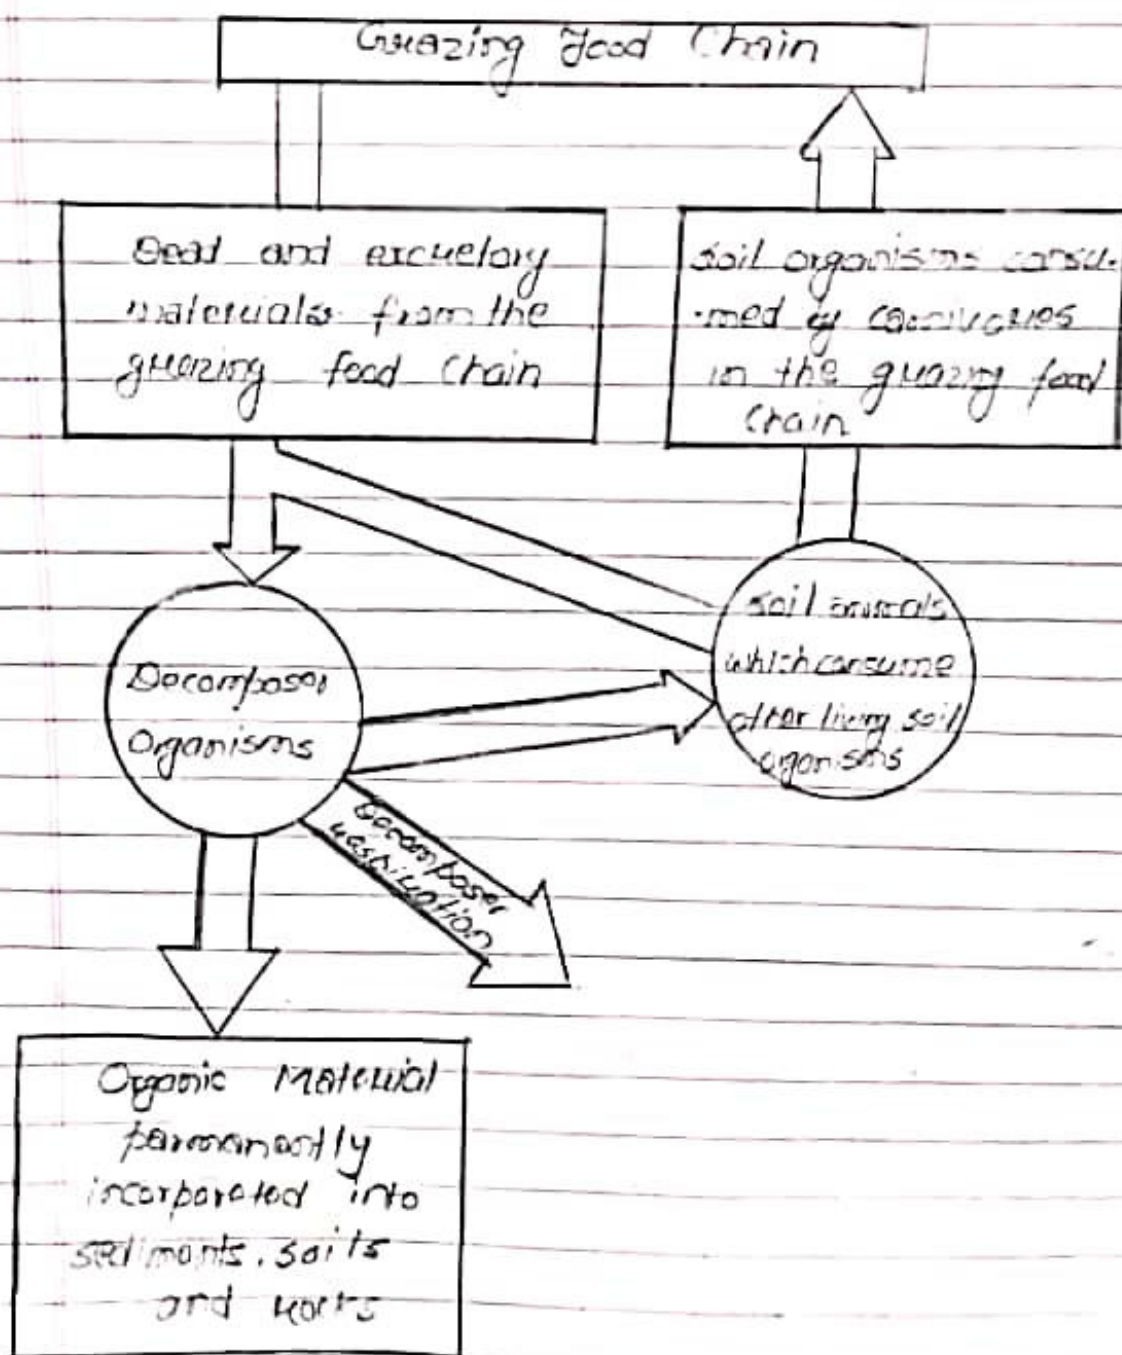 Grazing food Chain
Dead and excretory
materials from the
grazing food Chain
soil organisms consu-
-med by carnivores
in the grazing food
Chain
Decomposer
Organisms
soil animals
which consume
other living soil
organisms
Decomposer
respiration
Organic Material
permanantly
incorporated into
sedimants, soils
and rocks